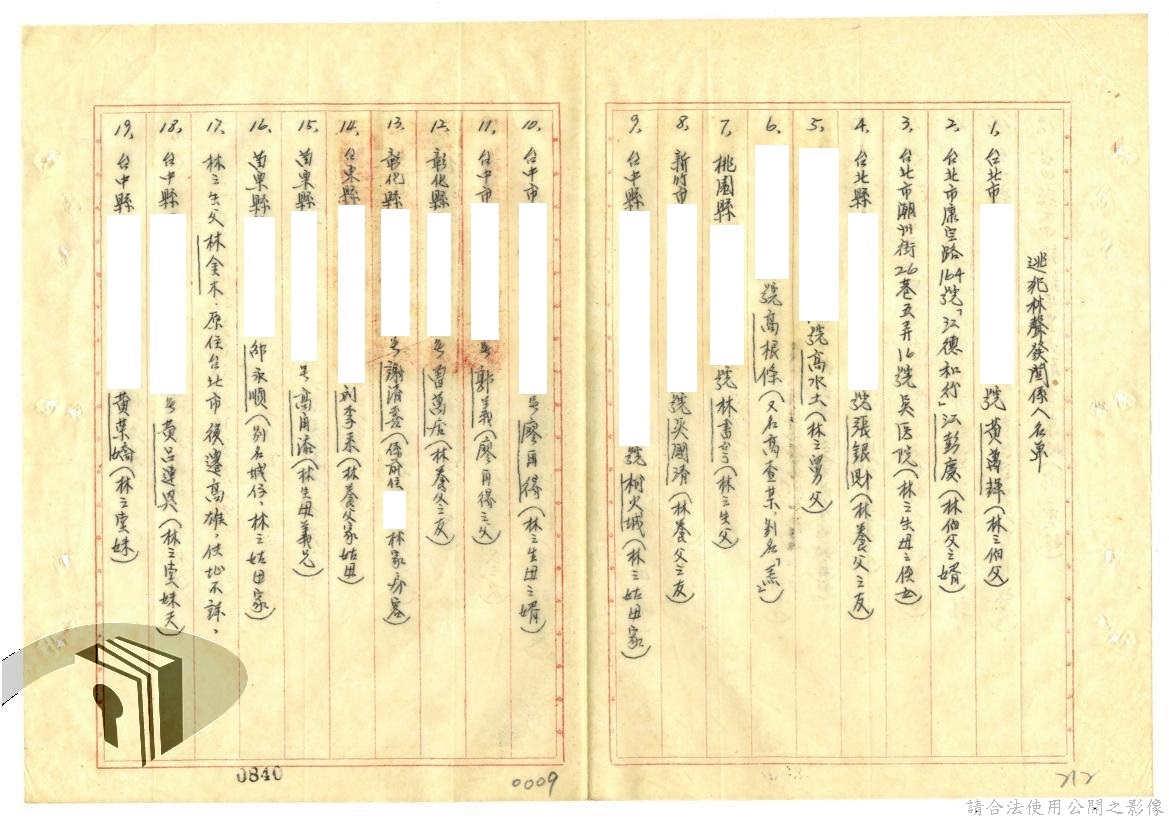 逃犯林聲發関係人名單
1、台北市 號黃萬鐸（林之伯父）
2、台北市康定路164號「江德和行」江彭慶（林伯父之婿）
3、台北市潮州街26巷五弄16號吳医院（林之生母之使女）
4、台北縣 號張銀財（林養父之友）
5、 號高水土（林之舅父）
6、 號高根條（又名高查某，別名「
7、桃園縣 號林書 （林之生父）
8、新竹市 號吳國濟（林養父之友）
9、台中縣 號柯火城（林之姑母家）
10、台中市 号廖再得（林之生母之婿）
11、台中市 号郭義（廖再得之父）
12、彰化縣 号曾萬居（林養父之友）
13、彰化縣 号謝清喜（係前住 林家房客）
14、台東縣 刘李来（林養父家姑母）
15、苗栗縣 号高用添（林生母義兄）
16、苗栗縣 邱永順（別名城仔，林之姑母家）
17、林之生父林金木，原住台北市後遷高雄，住址不詳。
18、台中縣 号黃呈連興（林之堂妹夫）
19、台中縣 黃葉嬌（林之堂妹）
0840
0009
212
請合法使用公開之影像